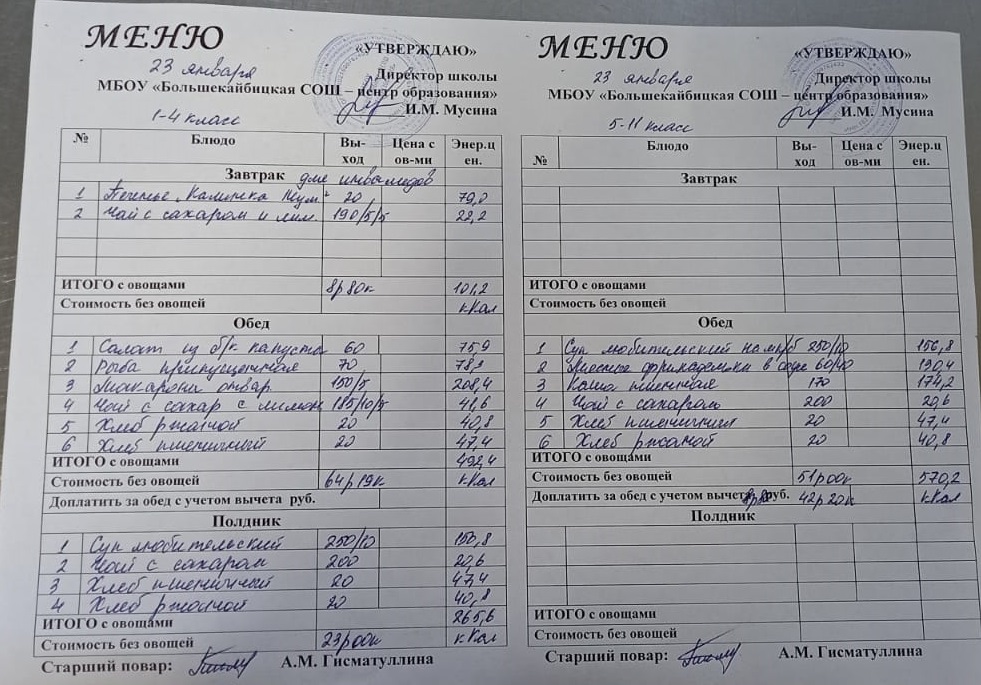 МЕНЮ
«УТВЕРЖДАЮ»
23 января
Директор школы
МБОУ «Большекайбицкая СОШ – центр образования»
И.М. Мусина
1-4 класс
№ Блюдо Вы-ход Цена с ов-ми Энер.ц ен.
Завтрак для инвалидов
1 Печенье 20 79,0
2 Чай с сахаром и лим 190/5/5 22,2
ИТОГО с овощами 8р80к 101,2
Стоимость без овощей кКал
Обед
1 Салат из б/к капусты 60 75,9
2 Рыба припущенная 70
3 Макароны отвар 150/5 208,4
4 Чай с сахар с лимон 185/10/5 41,6
5 Хлеб ржаной 20 40,8
6 Хлеб пшеничный 20 47,4
ИТОГО с овощами 492,4
Стоимость без овощей 64р19к кКал
Доплатить за обед с учетом вычета руб.
Полдник
1 Суп любительский 250/10
2 Чай с сахаром 200 20,6
3 Хлеб пшеничный 20 47,4
4 Хлеб ржаной 20 40,8
ИТОГО с овощами 265,6
Стоимость без овощей 23р00к кКал
Старший повар: А.М. Гисматуллина
МЕНЮ
«УТВЕРЖДАЮ»
23 января
Директор школы
МБОУ «Большекайбицкая СОШ – центр образования»
И.М. Мусина
5-11 класс
№ Блюдо Вы-ход Цена с ов-ми Энер.ц ен.
Завтрак
ИТОГО с овощами
Стоимость без овощей
Обед
1 Суп любительский на 250/10 156,8
2 фрикадельки в соусе 60/40 190,4
3 Каша пшенная 170 174,2
4 Чай с сахаром 200 20,6
5 Хлеб пшеничный 20 47,4
6 Хлеб ржаной 20 40,8
ИТОГО с овощами
Стоимость без овощей 51р00к 570,2
Доплатить за обед с учетом вычета руб. 42р20к кКал
Полдник
ИТОГО с овощами
Стоимость без овощей
Старший повар: А.М. Гисматуллина